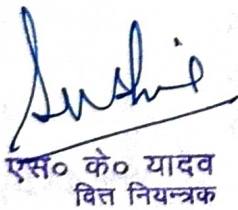 Sushil
एस० के० यादव
वित्त नियन्त्रक